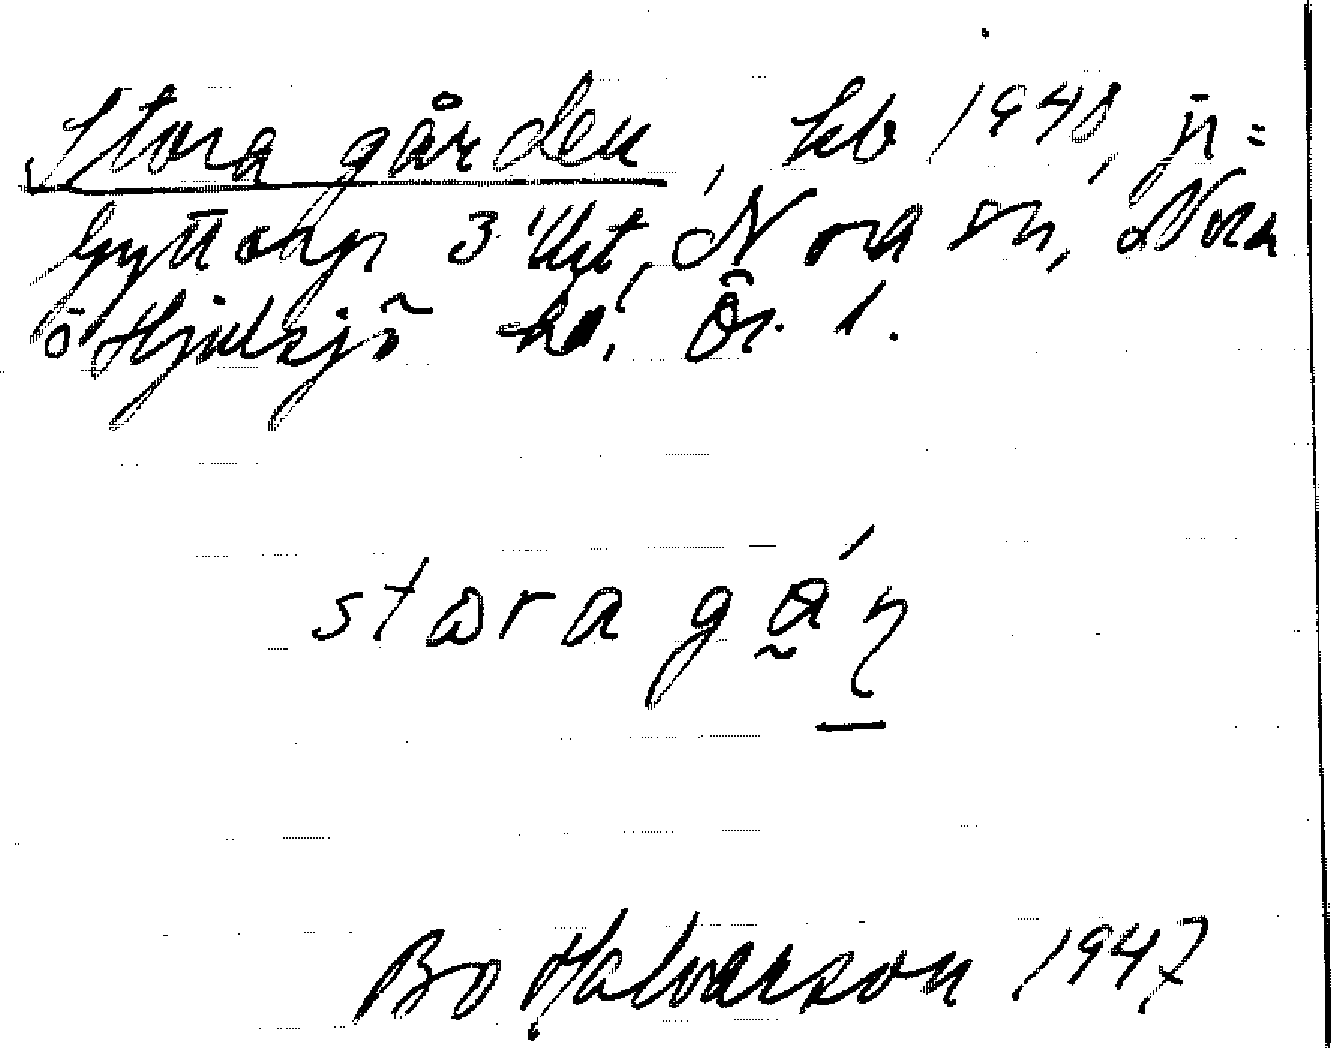 Stora gården, 1948, jr=
Gyttorp 3 Nora sn, Nora
o Hjulsjö hd, Ör. l.
stɷra gǻɳ
Bo Halvarson 1947